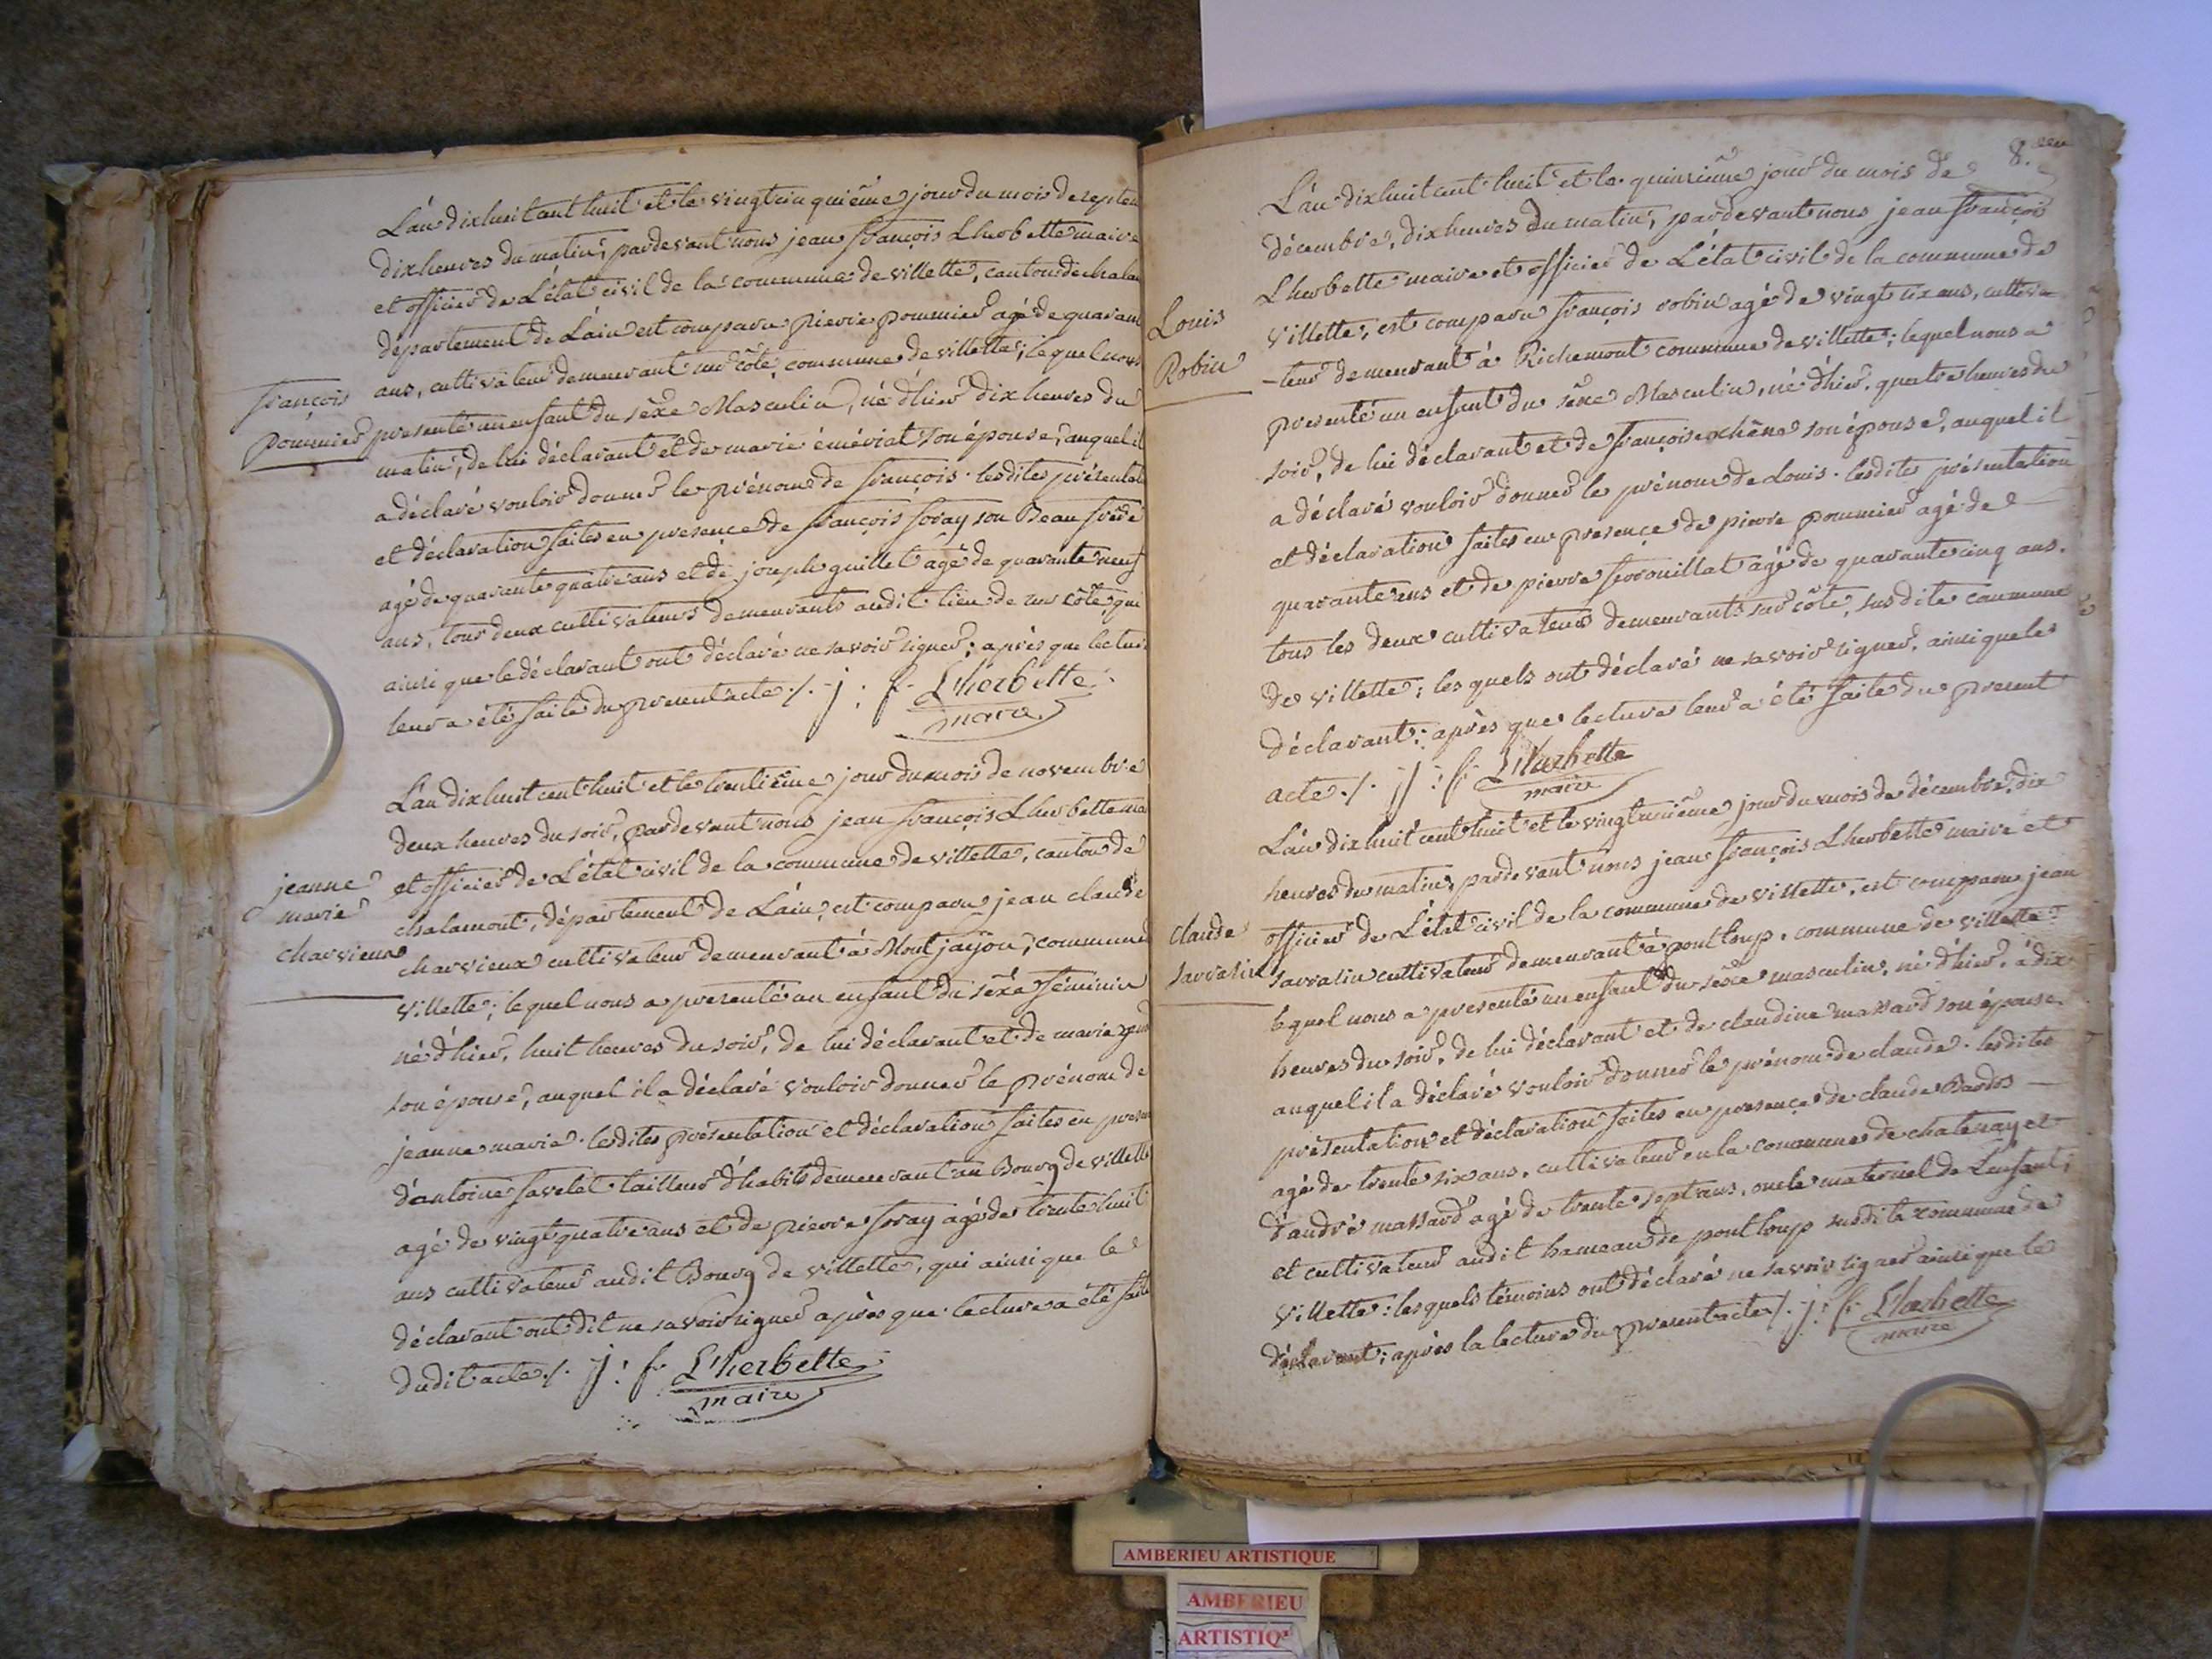 L'an dix huit cent huit et le vingt cinquième jour du mois de septem
dix heures du matin; pardevant nous jean françois Lherbette maire
et officier de L'état civil de la commune de villette, canton de chala
departement de L'ain est comparu pierre pommier agé de quarant
ans, cultivateur demeurant sur côte, commune de villette; lequel nous
françois
pommier
presenté un enfant du sèxe Masculin, né d'hier dix heures du
matin; de lui déclarant et de marie éméviat son épouse, auquel il
a déclaré vouloir donner le prénom de françois. lesdites présentat
et déclaration faites en presence de françois foray son Beau frère
agé de quarante quatre ans et de joseph guillet agé de quarante neuf
ans, tous deux cultivateurs demeurants audit lieu de sur côte qui
ainsi que le déclarant ont déclaré ne savoir signer; après que lectur
leur a été faite du present acte ./. j: f. L'herbette
maire
L'an dix huit cent huit et le trentième jour du mois de novembre
deux heures du soir, pardevant nous jean françois Lherbette ma
et officier de L'état civil de la commune de villette, canton de
jeanne
marie
charvieux
chalamont, département de L'ain, est comparu jean claude
charvieux cultivateur demeurant à Montjayon, commune
villette; lequel nous a presenté un enfant du sèxe féminin
né d'hier, huit heures du soir, de lui déclarant et de marie
son épouse, auquel il a déclaré vouloir donner le prénom de
jeanne marie. lesdites présentation et déclaration faites en presen
d'antoine favelet tailleur d'habits demeurant au Bourg de villette
agé de vingt quatre ans et de pierre foray agé de trente huit
ans cultivateur audit Bourg de villette, qui ainsi que le
déclarant ont dit ne savoir signer après que lecture a été faite
dudit acte ./. j: f. L'herbette
maire
8.
L'an dix huit cent huit et le quinzième jour du mois de
décembre, dix heures du matin, pardevant nous jean françois
Lherbette maire et officier de L'état civil de la commune de
Louis
Robin
villette, est comparu françois robin agé de vingt six ans, cultiva
-teur demeurant à Richemont commune de villette; lequel nous a
presenté un enfant du sèxe Masculin, né d'hier, quatre heures du
soir, de lui déclarant et de françoise chêne son épouse, auquel il
a déclaré vouloir donner le prénom de Louis. lesdites présentation
et déclaration faites en presence de pierre pommier agé de
quarante ans et de pierre ferrouillat agé de quarante cinq ans.
tous les deux cultivateurs demeurants sur côte, susdite commune
de villette; lesquels ont déclaré ne savoir signer, ainsi que le
déclarant; après que lecture leur a été faite du present
acte ./. j: f. L'herbette
maire
L'an dix huit cent huit et le vingt unième jour du mois de décembre, dix
heures du matin, pardevant nous jean françois Lherbette maire et
claude
sarrasin
officier de L'état civil de la commune de villette, est comparu jean
sarrasin cultivateur demeurant à pontloup, commune de villette
lequel nous a presenté un enfant du sèxe masculin, né d'hier, à dix
heures du soir, de lui déclarant et de claudine massard son épouse
auquel il a déclaré vouloir donner le prénom de claude. lesdites
présentation et déclaration faites en presence de claude Bardos
agé de trente six ans, cultivateur en la commune de chatenay et
d'andré massard agé de trente sept ans, oncle maternel de L'enfant;
et cultivateur audit hameau de pontloup susdite commune de
villette: lesquels témoins ont déclaré ne savoir signer ainsi que le
déclarant; après la lecture du present acte ./. j: f. L'herbette
maire
AMBERIEU ARTISTIQUE
AMBERIEU
ARTISTIQ